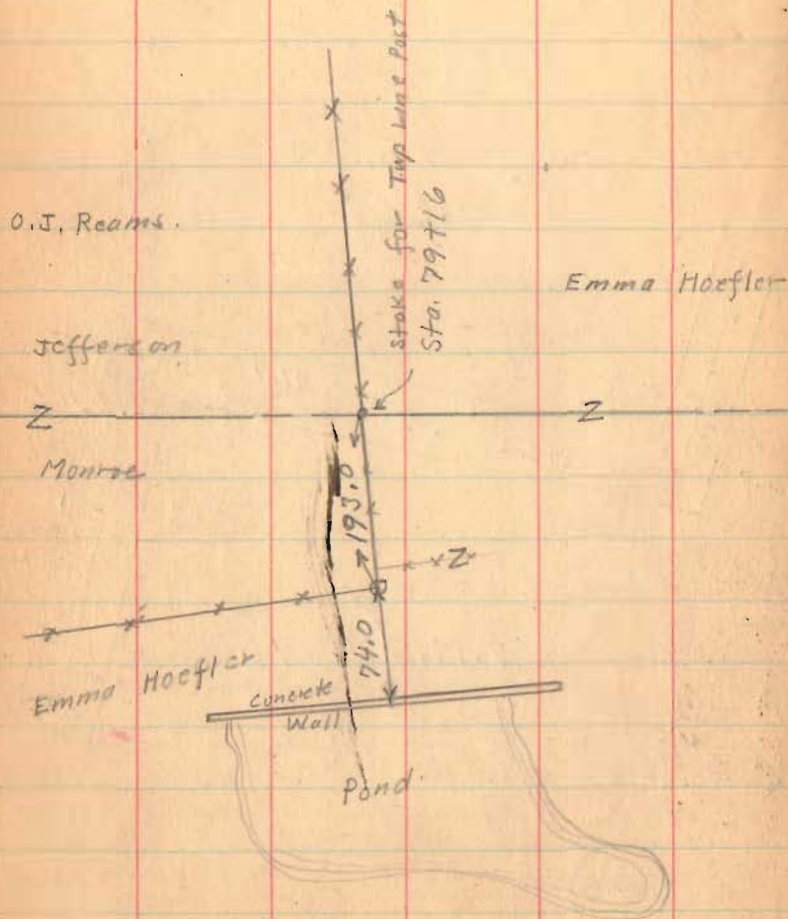 O.J. Reams.
Stake for Twp Line Post
Sta. 79+16
Emma Hoefler
Jefferson
Z
Z
Monroe
193.0
Z
74.0
Emma Hoefler
Concrete
Wall
Pond.